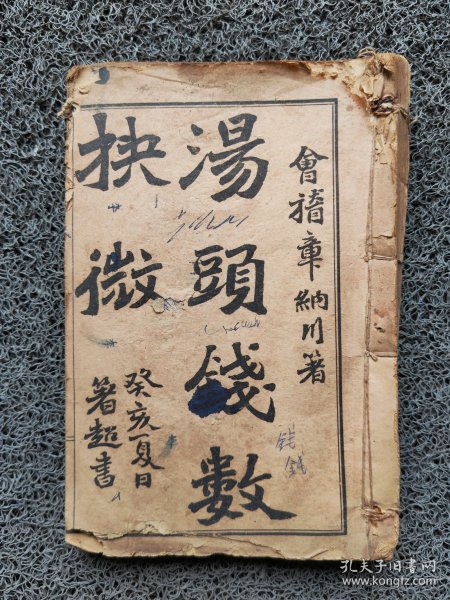 會稽章納川著
湯頭錢數
抉微
癸亥夏日
著超書
錢
錢
孔夫子旧书网
www.kongfz.com